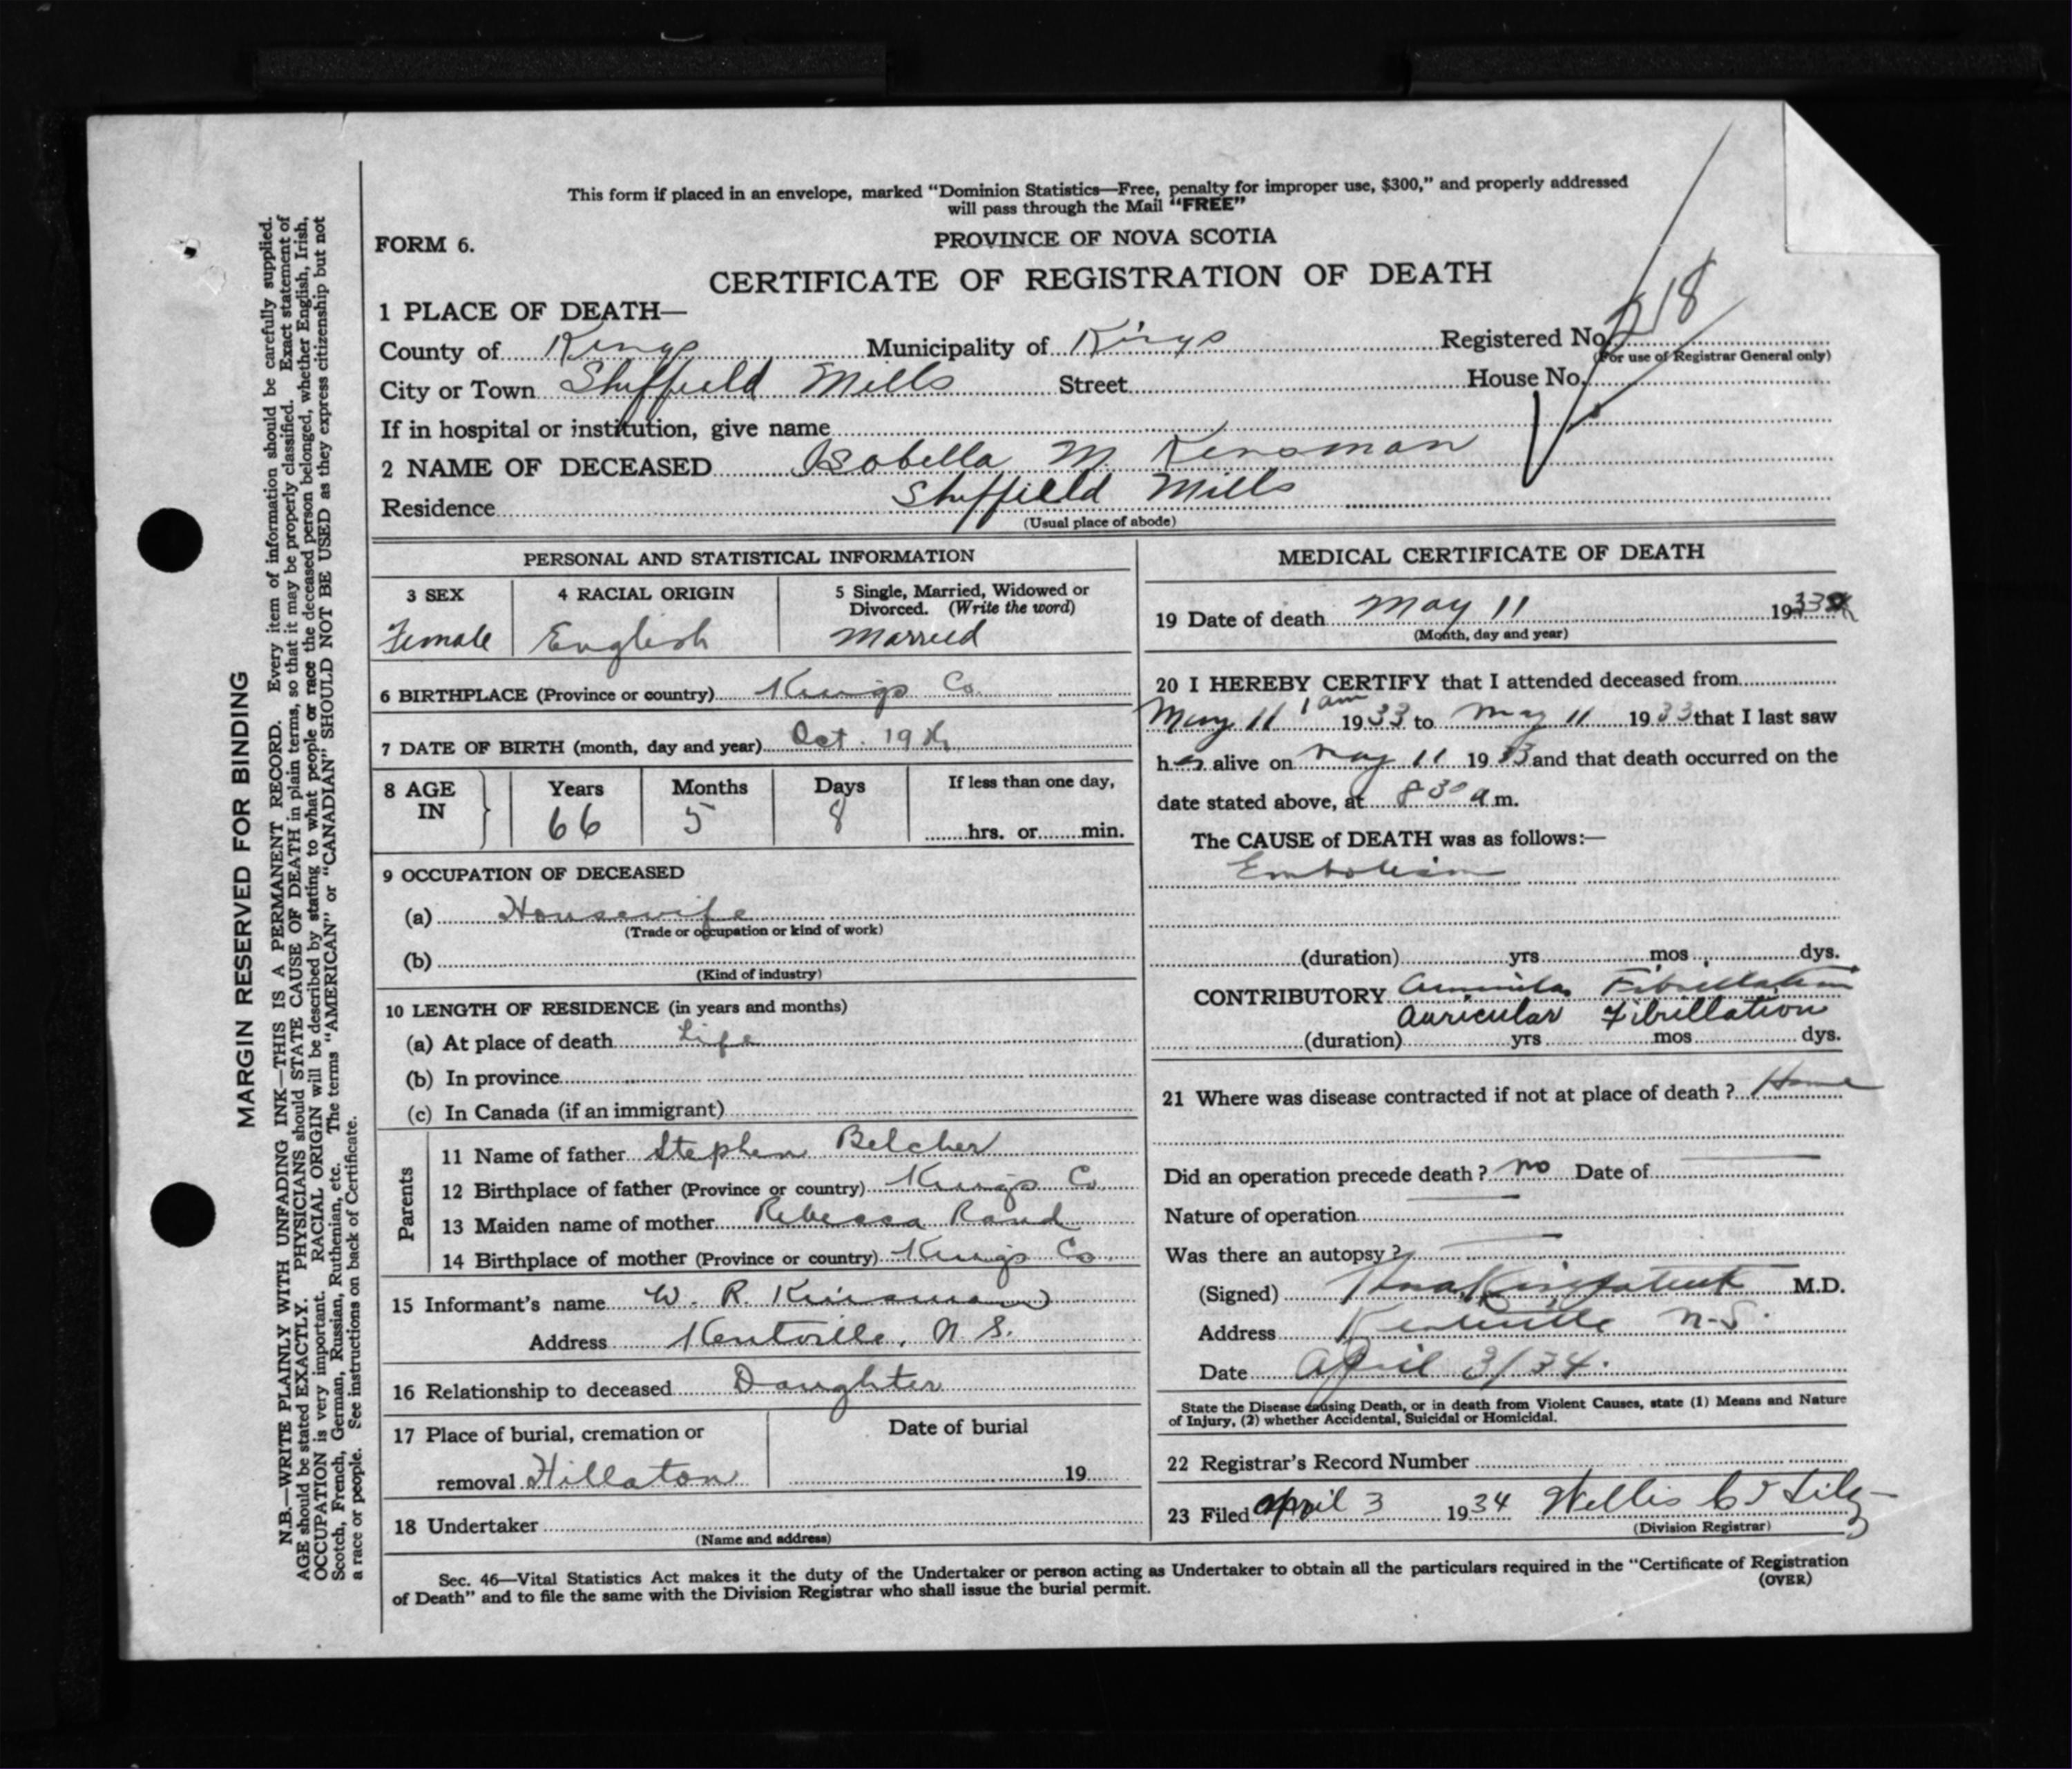 This form if placed in an envelope, marked "Dominion Statistics—Free, penalty for improper use, $300," and properly addressed
will pass through the Mail "FREE"
FORM 6.
PROVINCE OF NOVA SCOTIA
CERTIFICATE OF REGISTRATION OF DEATH
1 PLACE OF DEATH—
County of Kings Municipality of Kings Registered No. 218
(For use of Registrar General only)
City or Town Sheffield Mills Street House No.
If in hospital or institution, give name
2 NAME OF DECEASED Isobella M Kinsman
Residence Sheffield Mills
(Usual place of abode)
PERSONAL AND STATISTICAL INFORMATION
3 SEX
Female
4 RACIAL ORIGIN
English
5 Single, Married, Widowed or
Divorced. (Write the word)
Married
6 BIRTHPLACE (Province or country) Kings Co.
7 DATE OF BIRTH (month, day and year) Oct. 19th
8 AGE IN Years Months Days If less than one day,
66 5 8 hrs. or min.
9 OCCUPATION OF DECEASED
(a) Housewife
(Trade or occupation or kind of work)
(b)
(Kind of industry)
10 LENGTH OF RESIDENCE (in years and months)
(a) At place of death Life
(b) In province
(c) In Canada (if an immigrant)
Parents
11 Name of father Stephen Belcher
12 Birthplace of father (Province or country) Kings Co
13 Maiden name of mother Rebecca Rand
14 Birthplace of mother (Province or country) Kings Co
15 Informant's name W. R. Kinsman
Address Kentville, N.S.
16 Relationship to deceased Daughter
17 Place of burial, cremation or
removal Hillaton
Date of burial
19
18 Undertaker
(Name and address)
MEDICAL CERTIFICATE OF DEATH
19 Date of death May 11 1933
(Month, day and year)
20 I HEREBY CERTIFY that I attended deceased from
May 11 1 am 1933 to May 11 1933 that I last saw
her alive on May 11 1933 and that death occurred on the
date stated above, at 8 30 a.m.
The CAUSE of DEATH was as follows:—
Embolism
(duration) yrs mos dys.
CONTRIBUTORY Auricular Fibrillation
Auricular Fibrillation
(duration) yrs mos dys.
21 Where was disease contracted if not at place of death? Home
Did an operation precede death? no Date of
Nature of operation
Was there an autopsy?
(Signed) M.D.
Address Kentville N.S.
Date April 3/34.
State the Disease causing Death, or in death from Violent Causes, state (1) Means and Nature
of Injury, (2) whether Accidental, Suicidal or Homicidal.
22 Registrar's Record Number
23 Filed April 3 1934 Wellis
(Division Registrar)
Sec. 46—Vital Statistics Act makes it the duty of the Undertaker or person acting as Undertaker to obtain all the particulars required in the "Certificate of Registration
of Death" and to file the same with the Division Registrar who shall issue the burial permit.
(OVER)
MARGIN RESERVED FOR BINDING
N.B.—WRITE PLAINLY WITH UNFADING INK—THIS IS A PERMANENT RECORD. Every item of information should be carefully supplied.
AGE should be stated EXACTLY. PHYSICIANS should STATE CAUSE OF DEATH in plain terms, so that it may be properly classified. Exact statement of
OCCUPATION is very important. RACIAL ORIGIN will be described by stating to what people or race the deceased person belonged, whether English, Irish,
Scotch, French, German, Russian, Ruthenian, etc. The terms "AMERICAN" or "CANADIAN" SHOULD NOT BE USED as they express citizenship but not
a race or people. See instructions on back of Certificate.